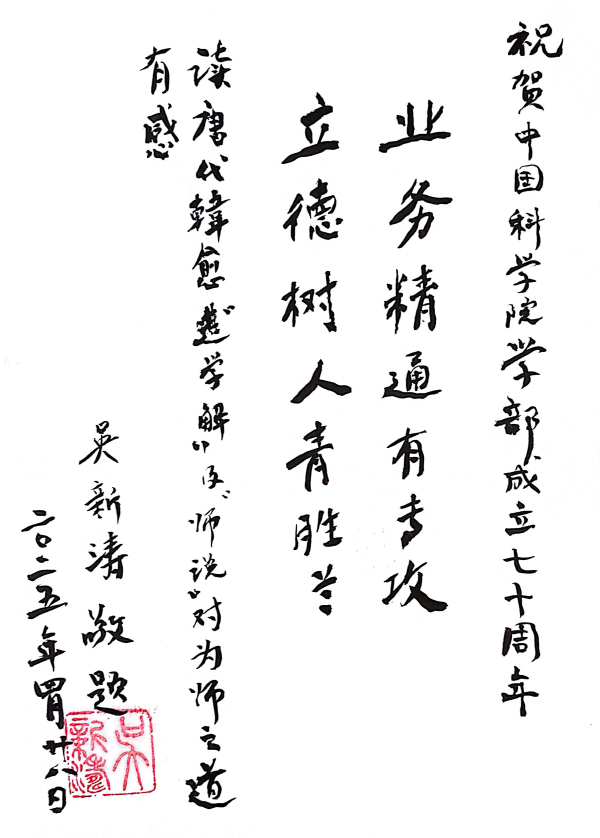 祝贺中国科学院学部成立七十周年
业务精通有专攻
立德树人青胜兰
读唐代韩愈“进学解”及“师说”对为师之道
有感
吴新涛敬题
二〇二五年四月廿八日
吴新涛